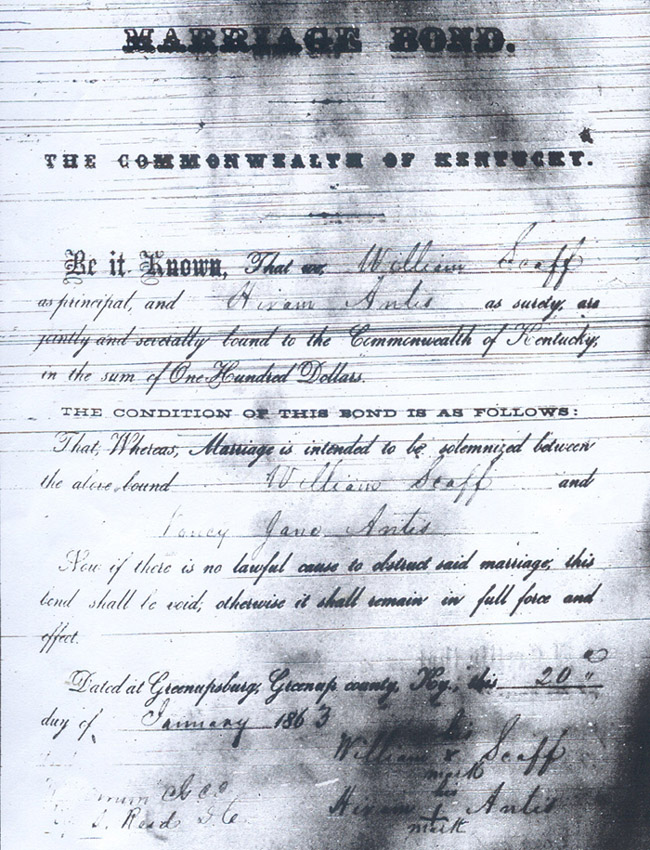 MARRIAGE BOND.
THE COMMONWEALTH OF KENTUCKY.
Be it Known, That we, William Scaff
as principal, and Hiram Antis as surety, are
jointly and severally bound to the Commonwealth of Kentucky,
in the sum of One Hundred Dollars.
THE CONDITION OF THIS BOND IS AS FOLLOWS:
That, Whereas, Marriage is intended to be solemnized between
the above bound William Scaff and
Nancy Jane Antis
Now if there is no lawful cause to obstruct said marriage, this
bond shall be void; otherwise it shall remain in full force and
effect.
Dated at Greenupsburg, Greenup county, Ky., this 20
day of January 1863
his
William x Scaff
mark
his
Hiram + Antis
mark
J. Reid